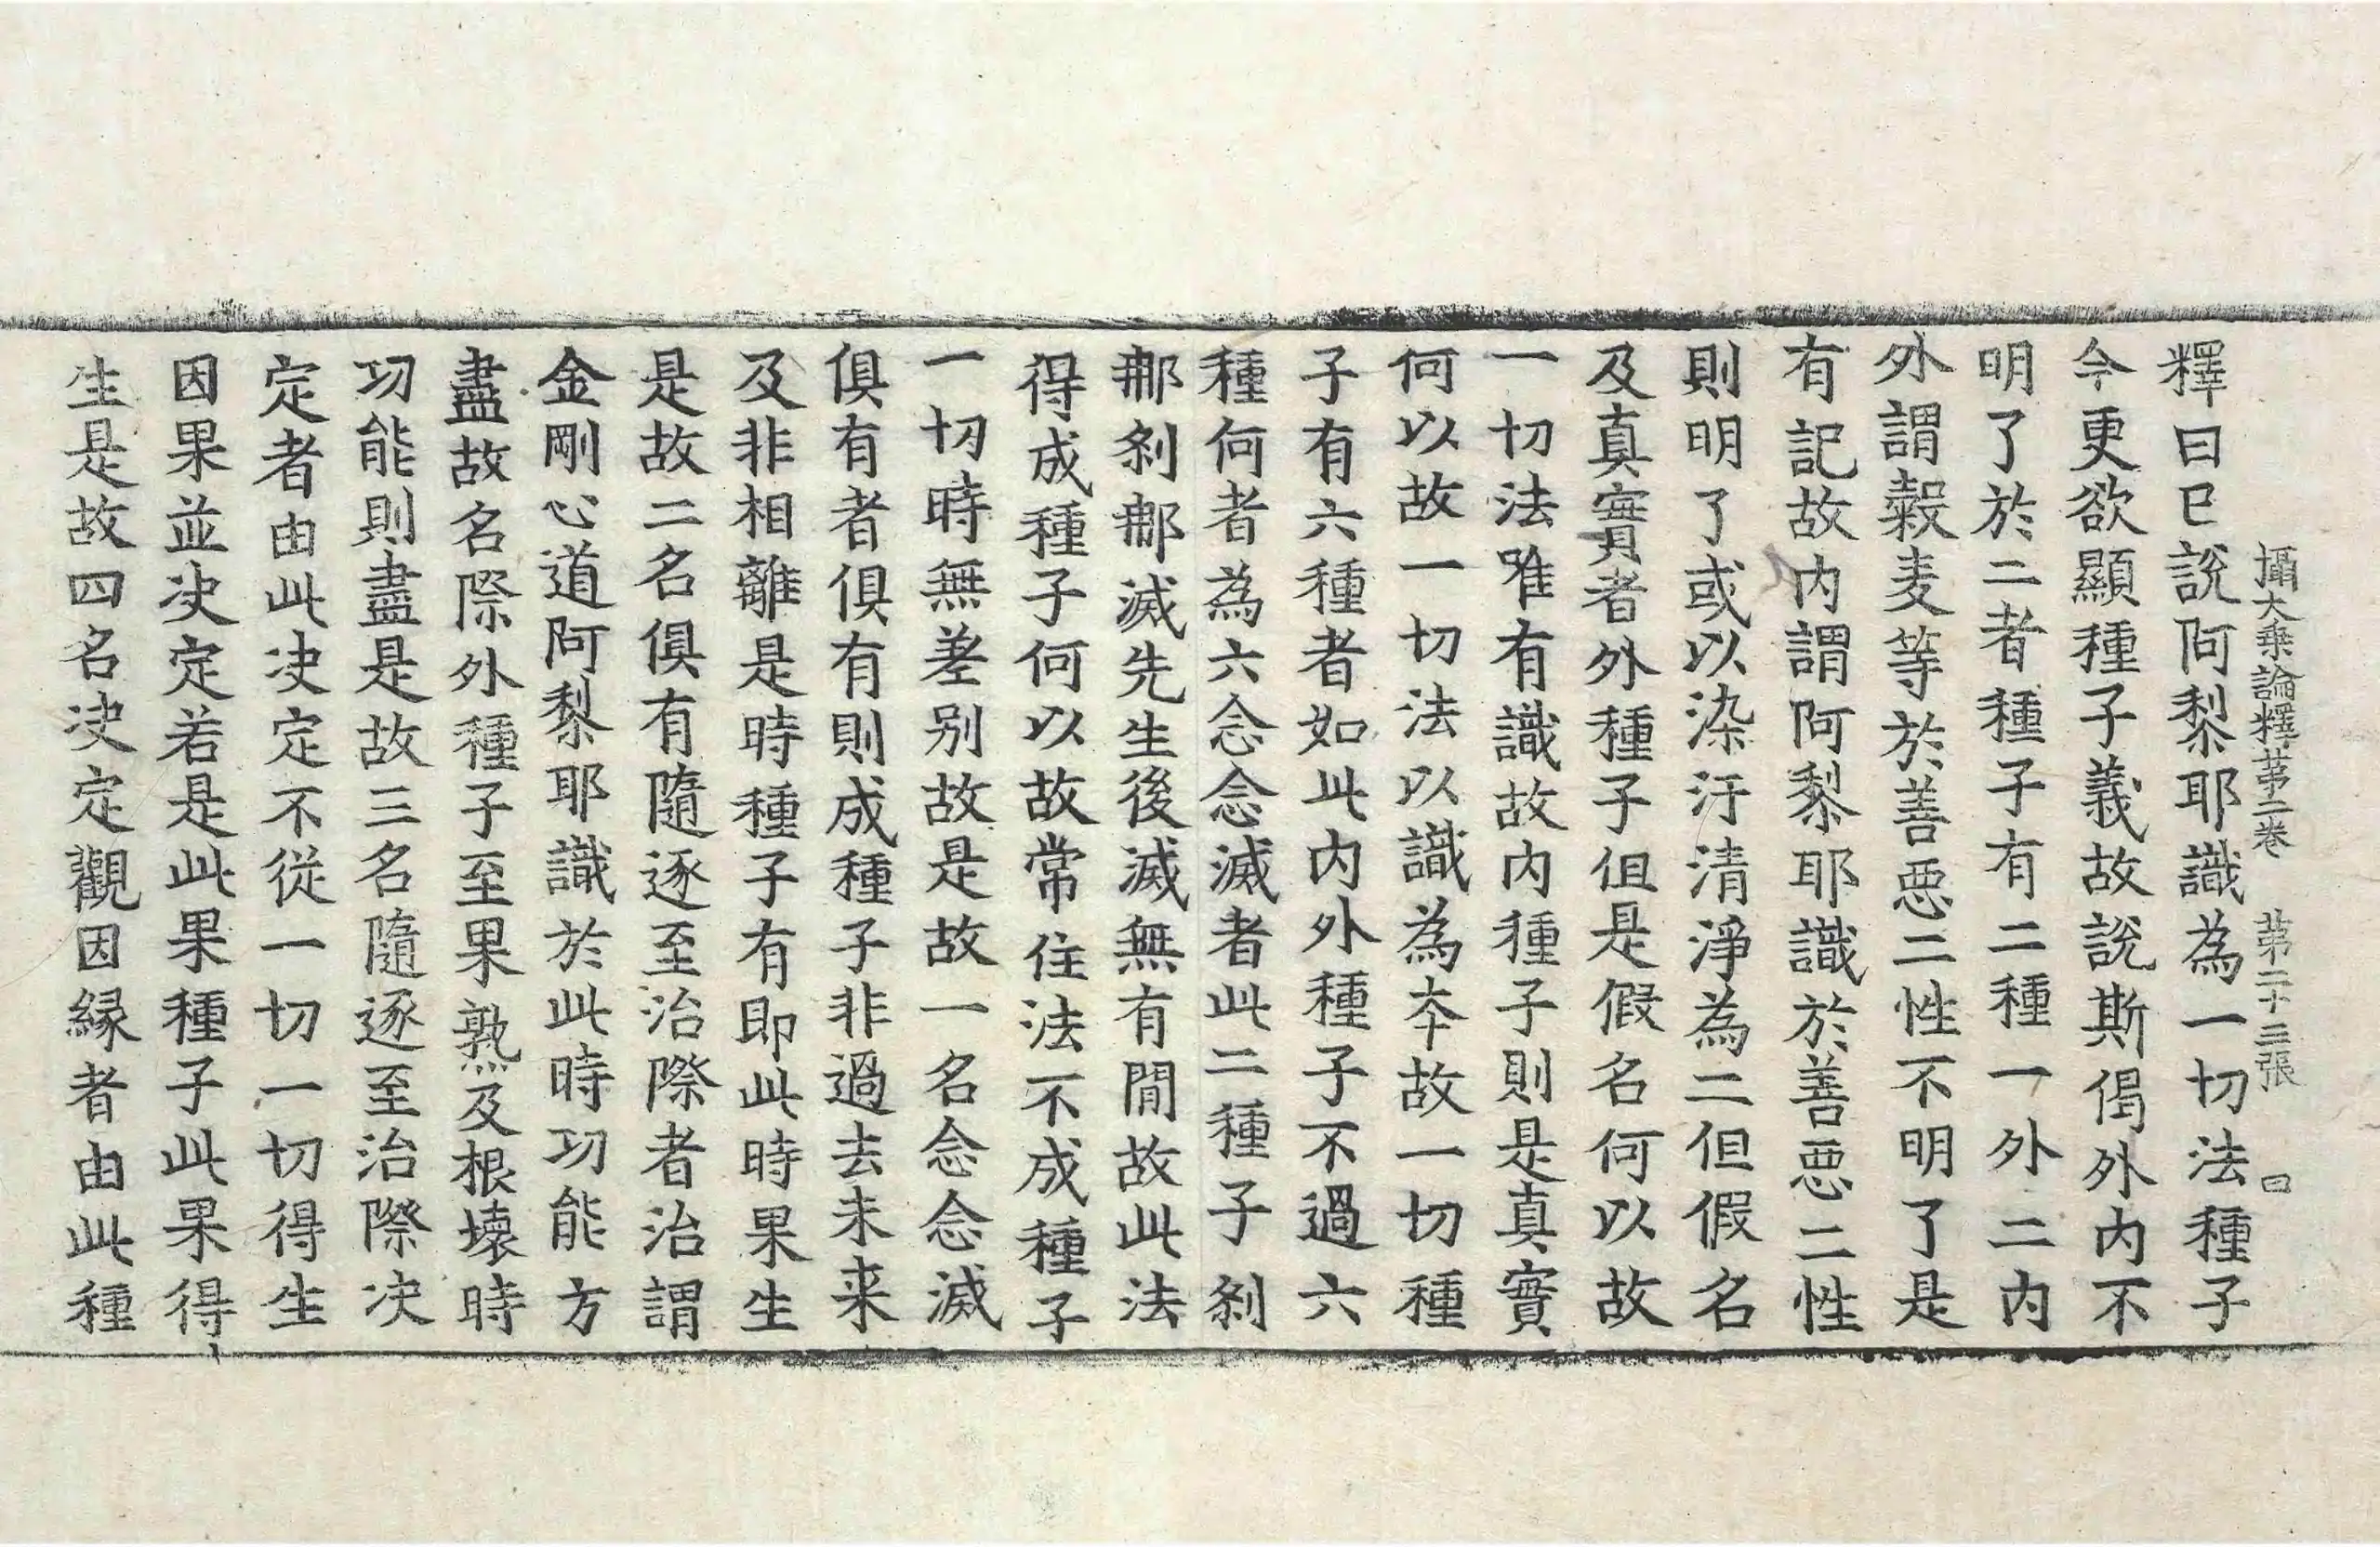 攝大乗論釋苐二巻　苐二十三張　曰
釋曰已說阿黎耶識為一切法種子
今更欲顯種子義故說斯偈外内不
明了於二者種子有二種一外二内
外謂穀麦等於善惡二性不明了是
有記故内謂阿黎耶識於善惡二性
則明了或以染汙清淨為二但假名
及真實者外種子但是假名何以故
一切法唯有識故内種子則是真實
何以故一切法以識為夲故一切種
子有六種者如此内外種子不過六
種何者為六念念滅者此二種子刹
那刹那滅先生後滅無有間故此法
得成種子何以故常住法不成種子
一切時無差别故是故一名念念滅
俱有者俱有則成種子非過去未来
及非相離是時種子有即此時果生
是故二名俱有隨逐至治際者治謂
金剛心道阿黎耶識於此時功能方
盡故名際外種子至果熟及根壞時
功能則盡是故三名隨逐至治際决
定者由此决定不從一切一切得生
因果並决定若是此果種子此果得
生是故四名决定觀因縁者由此種